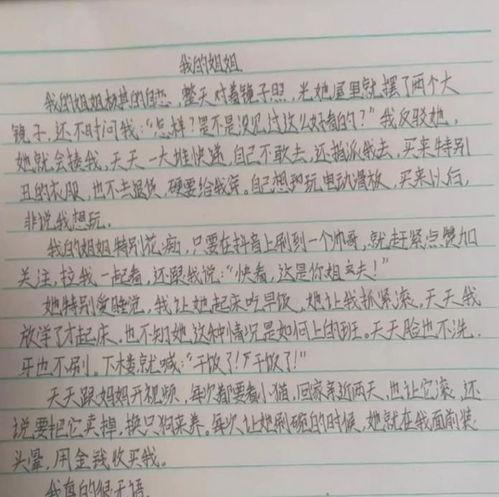 我的姐姐
我的姐姐极其的自恋，整天对着镜子照，光她屋里就摆了两个大
镜子，还不时问我：“怎样？是不是没见过这么好看的？”我反驳她，
她就会揍我，天天一大堆快递，自己不敢去，还指派我去，买来特别
丑的衣服，也不去退货，硬要给我穿。自己想玩电动滑板，买来以后，
非说我想玩。
我的姐姐特别花痴，只要在抖音上刷到一个帅哥，就赶紧点赞加
关注，拉我一起看，还跟我说：“快看，这是你姐夫！”
她特别爱睡觉，我让她起床吃早饭，她让我抓紧滚。天天我
放学了才起床。也不知她这种情况是如何上的班。天天脸也不洗，
牙也不刷。下楼就喊：“干饭了！干饭了！”
天天跟妈妈开视频，每次都要看小猫，回家亲近两天，也让它滚，还
说要把它卖掉，换只狗来养。每次让她刷碗的时候，她就在我面前装
头晕，用金钱收买我。
我真的很无语